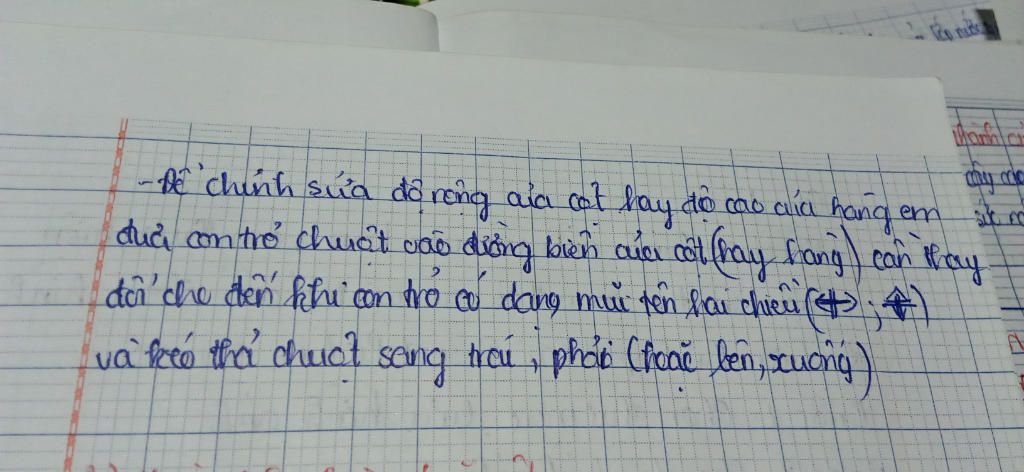 - Để chỉnh sửa độ rộng của cột hay độ cao của hàng em
đưa con trỏ chuột vào đường biên của cột (hay hàng) cần thay
đổi cho đến khi con trỏ có dạng mũi tên hai chiều (↔; ↕)
và kéo thả chuột sang trái, phải (hoặc lên, xuống)